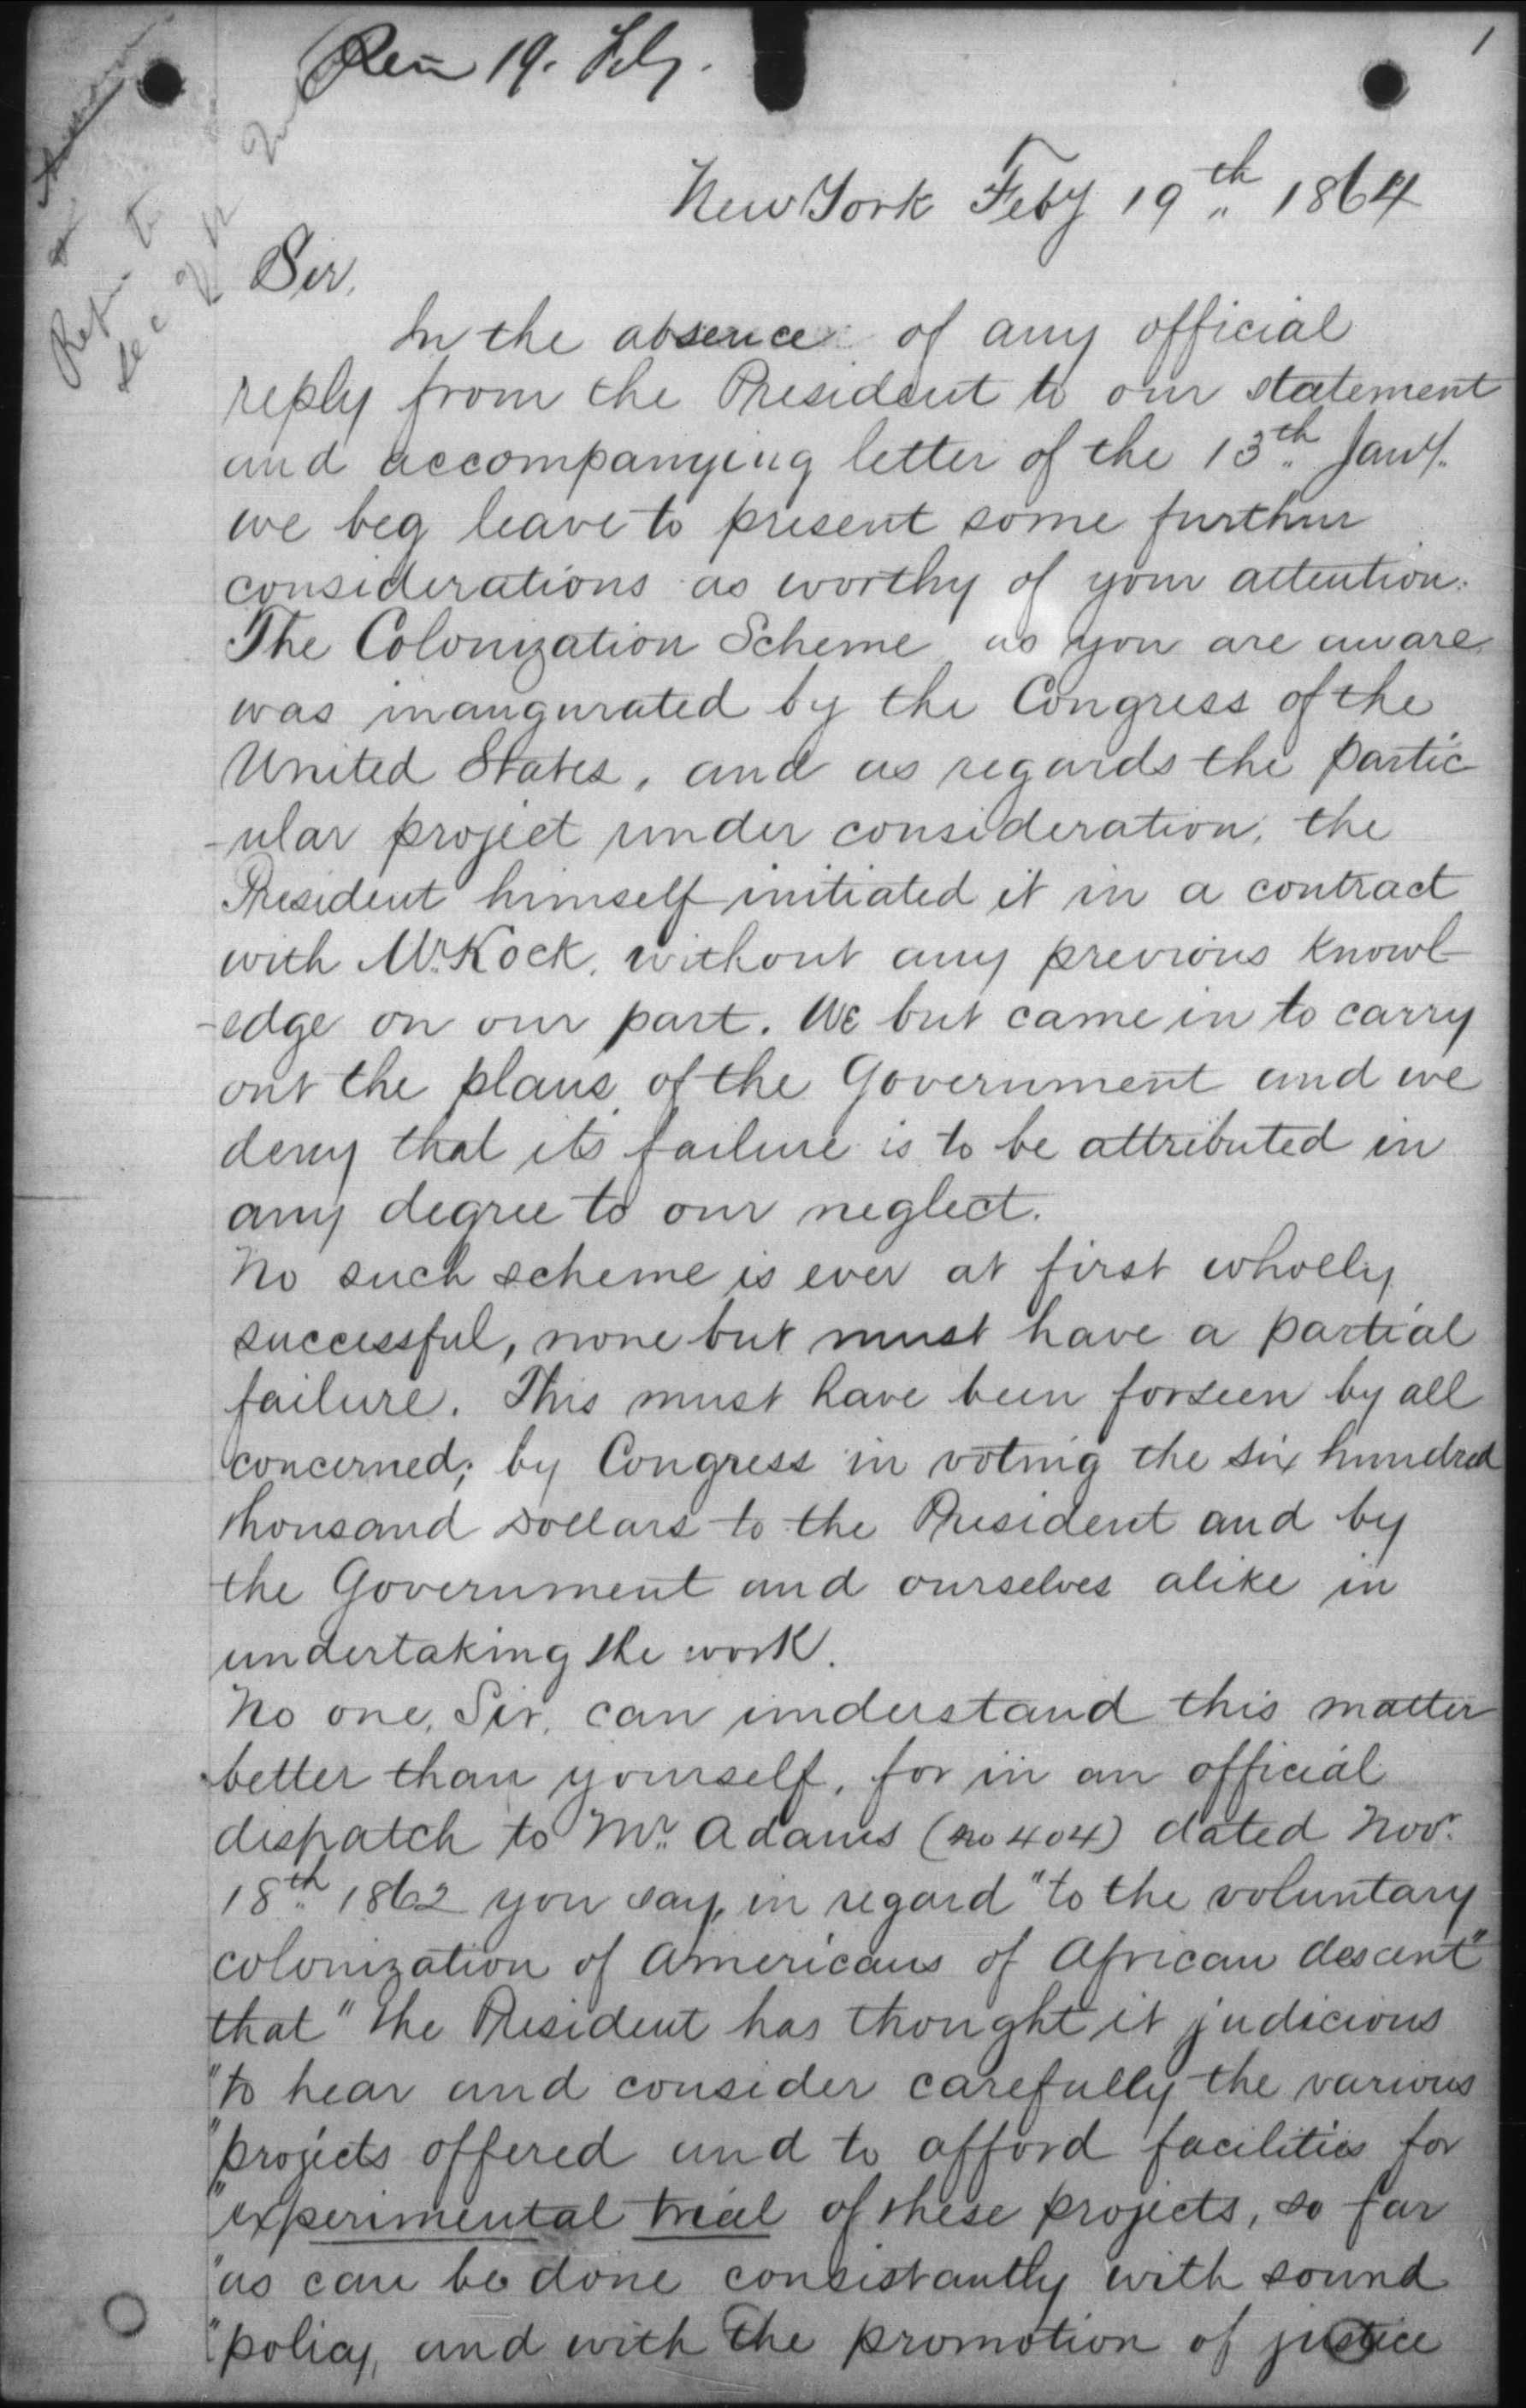 1
Rec 19. Feby.
New York Feby 19th 1864
Sir,
In the absence of any official
reply from the President to our statement
and accompanying letter of the 13th Jany.
we beg leave to present some further
considerations as worthy of your attention.
The Colonization Scheme as you are aware
was inaugurated by the Congress of the
United States, and as regards the partic
-ular project under consideration, the
President himself initiated it in a contract
with Mr. Kock, without any previous knowl-
-edge on our part. We but came in to carry
out the plans of the Government and we
deny that its failure is to be attributed in
any degree to our neglect.
No such scheme is ever at first wholly
successful, none but must have a partial
failure. This must have been forseen by all
concerned; by Congress in voting the six hundred
thousand Dollars to the President and by
the Government and ourselves alike in
undertaking the work.
No one, Sir, can understand this matter
better than yourself, for in an official
dispatch to Mr. Adams (no 404) dated Nov.
18th 1862 you say, in regard "to the voluntary
colonization of Americans of African descent"
that "the President has thought it judicious
"to hear and consider carefully the various
"projects offered and to afford facilities for
"experimental trial of these projects, so far
"as can be done consistantly with sound
"policy, and with the promotion of justice